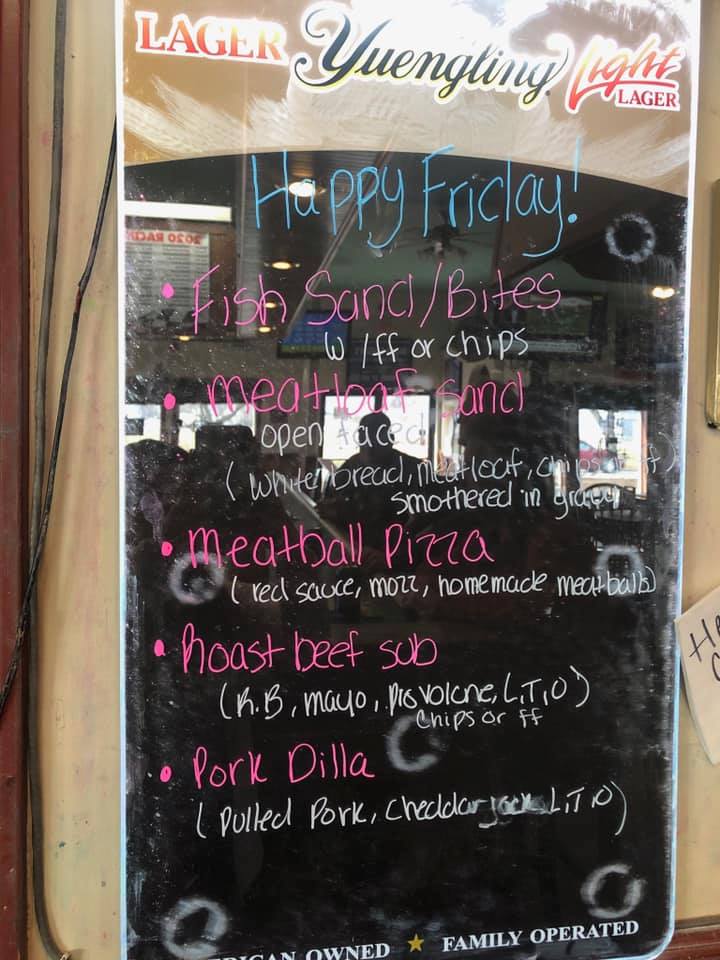 LAGER Yuengling Light
LAGER
Happy Friday!
2020 RACIN
• Fish Sand/Bites
w/ff or chips
• Meatloaf Sand
open faced
(white bread, meatloaf, chips or ff)
smothered in gravy
• Meatball Pizza
(red sauce, mozz, homemade meatballs)
• Roast beef sub
(R.B, mayo, provolone, L,T,O)
chips or ff
• Pork Dilla
(pulled Pork, cheddar jack L,T,O)
RICAN OWNED ★ FAMILY OPERATED